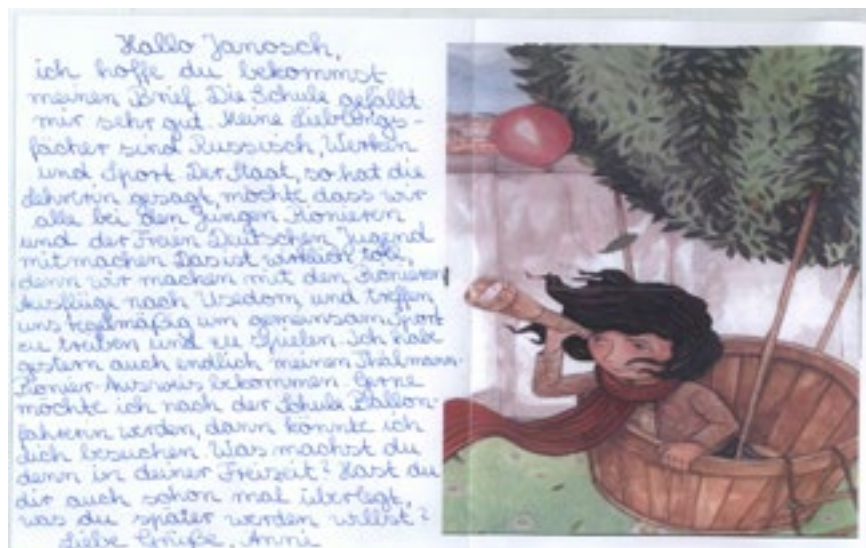 Hallo Janosch,
ich hoffe du bekommst
meinen Brief. Die Schule gefällt
mir sehr gut. Meine Lieblings-
fächer sind Russisch, Werken
und Sport. Der Staat, so hat die
Lehrerin gesagt, möchte dass wir
alle bei den Jungen Pionieren
und der Freien Deutschen Jugend
mitmachen. Das ist wirklich toll,
denn wir machen mit den Pionieren
Ausflüge nach Usedom, und treffen
uns regelmäßig um gemeinsam Sport
zu treiben und zu spielen. Ich habe
gestern auch endlich meinen Thälmann-
Pionier-Ausweis bekommen. Gerne
möchte ich nach der Schule Ballon-
fahrerin werden, dann könnte ich
dich besuchen. Was machst du
denn in deiner Freizeit? Hast du
dir auch schon mal überlegt,
was du später werden willst?
Liebe Grüße, Anni